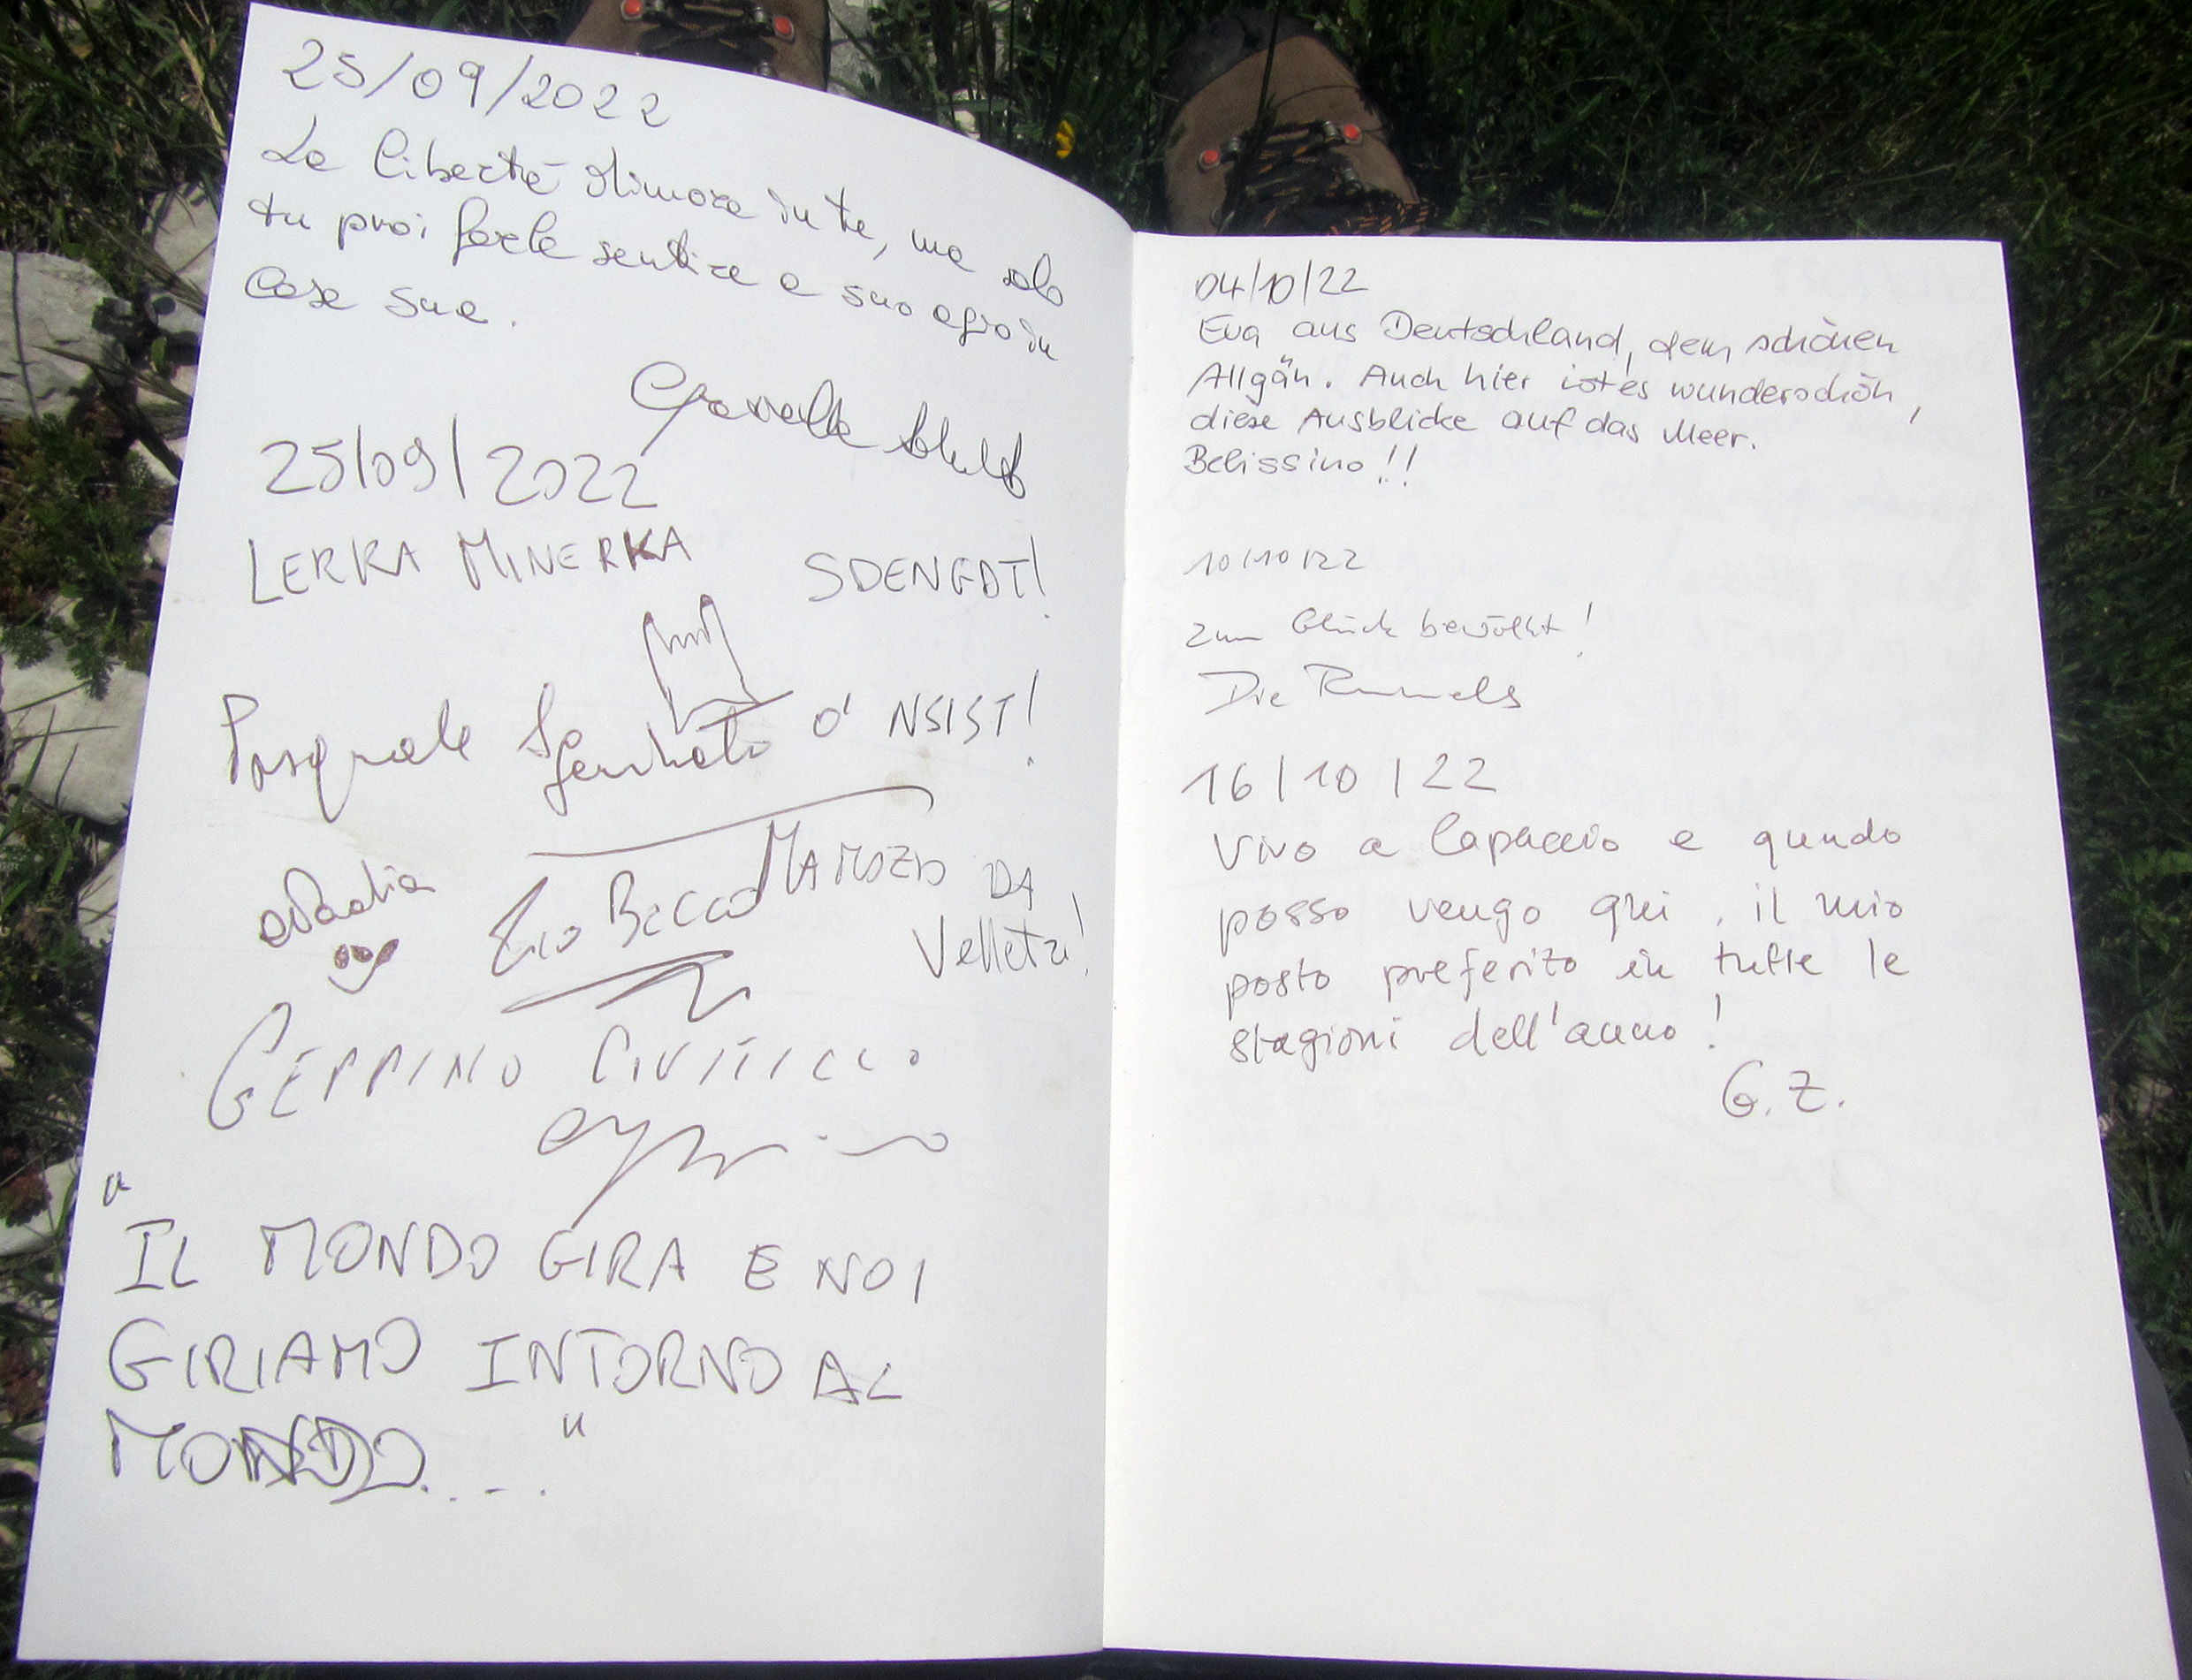 25/09/2022
La libertà dimora in te, ma solo
tu puoi farla sentire a suo agio in
casa sua.
25/09/2022
LERKA MINERKA
SDENGDT!
Pasquale
O' NSIST!
Nadia
Zio Becco
MAMOZIO DA
Velletri!
GEPPINO
"
IL MONDO GIRA E NOI
GIRIAMO INTORNO AL
MONDO.... "
04/10/22
Eva aus Deutschland, dem schönen
Allgäu. Auch hier ist es wunderschön,
diese Ausblicke auf das Meer.
Belissino!!
10/10/22
zum Glück bewölkt!
Die
16/10/22
Vivo a Capaccio e qundo
posso vengo qui, il mio
posto preferito in tutte le
stagioni dell'anno!
G.Z.